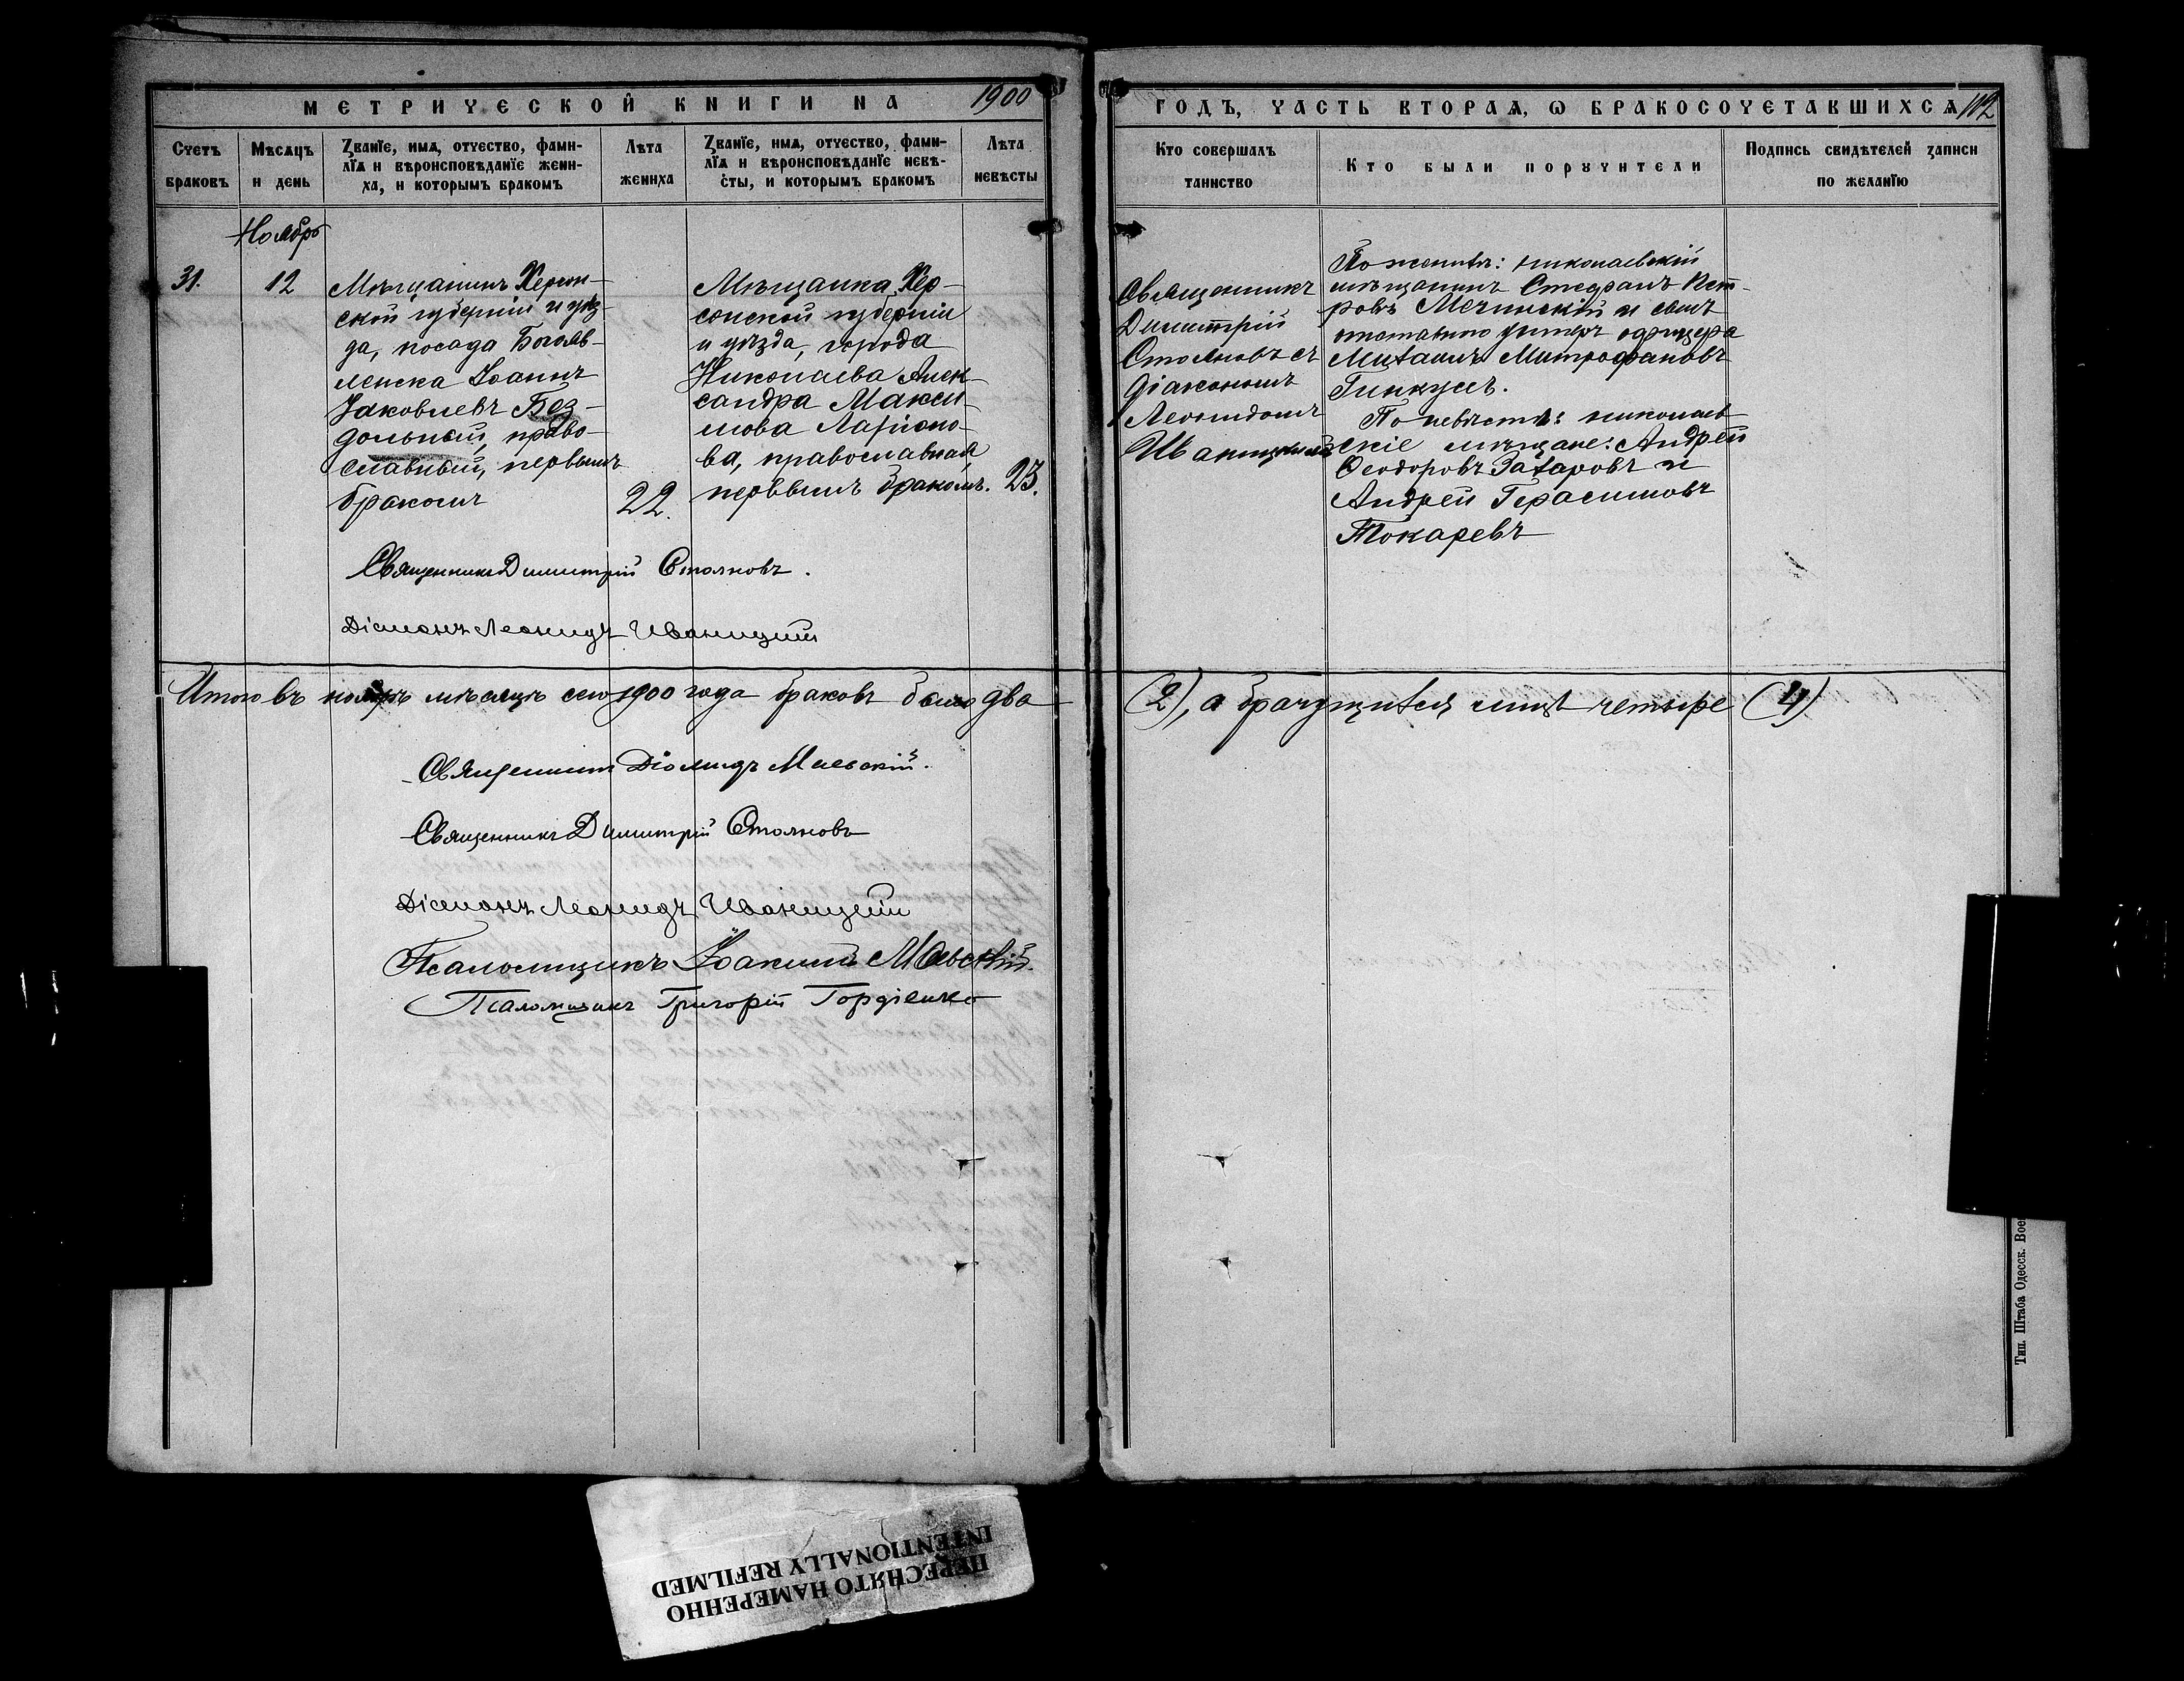 МЕТРИЧЕСКОЙ КНИГИ НА 1900
ГОДЪ, ЧАСТЬ ВТОРАѦ, Ѡ БРАКОСОЧЕТАВШИХСѦ 112
Счетъ браковъ
Мѣсѧцъ и день
Званїе, имѧ, отчество, фами-
лїѧ и вѣроисповѣданїе жени-
ха, и которымъ бракомъ
Лѣта жениха
Званїе, имѧ, отчество, фами-
лїѧ и вѣроисповѣданїе невѣ-
сты, и которымъ бракомъ
Лѣта невѣсты
Кто совершалъ таинство
Кто были порꙋчители
Подпись свидѣтелей записи по желанїю
Ноябрь
31.
12
Мѣщанинъ Херсон-
ской губерніи и уѣз-
да, посада Богояв-
ленска Іоаннъ
Іаковлевъ Без-
дольный, право-
славный, первымъ
бракомъ
22.
Мѣщанка Хер-
сонской губерніи
и уѣзда, города
Николаева Алек-
сандра Макси-
мова Ларіоно-
ва, православная
первымъ бракомъ.
23.
Священникъ
Димитрій
Стояновъ съ
діакономъ
Леонидомъ
Иваницкимъ
По женихѣ: николаевскій
мѣщанинъ Стефанъ Пет-
ровъ Мечинскій и сынъ
отставного унтеръ офицера
Михаилъ Митрофановъ
По невѣстѣ: николаев-
скіе мѣщане: Андрей
Ѳеодоровъ Захаровъ и
Андрей Герасимовъ
Токаревъ
Священникъ Димитрій Стояновъ.
Діаконъ Леонидъ Иваницкій
Итого въ ноябрѣ мѣсяцѣ сего 1900 года браковъ было два (2), а брачущихся лицъ четыре (4)
Священникъ Діомидъ Маевскій.
Священникъ Димитрій Стояновъ
Діаконъ Леонидъ Иваницкій
Псаломщикъ Іоакимъ Маевскій.
Псаломщикъ Григорій Гордіенко
Тип. Штаба Одесск. Вое
ПЕРЕСНЯТО НАМЕРЕННО
INTENTIONALLY REFILMED